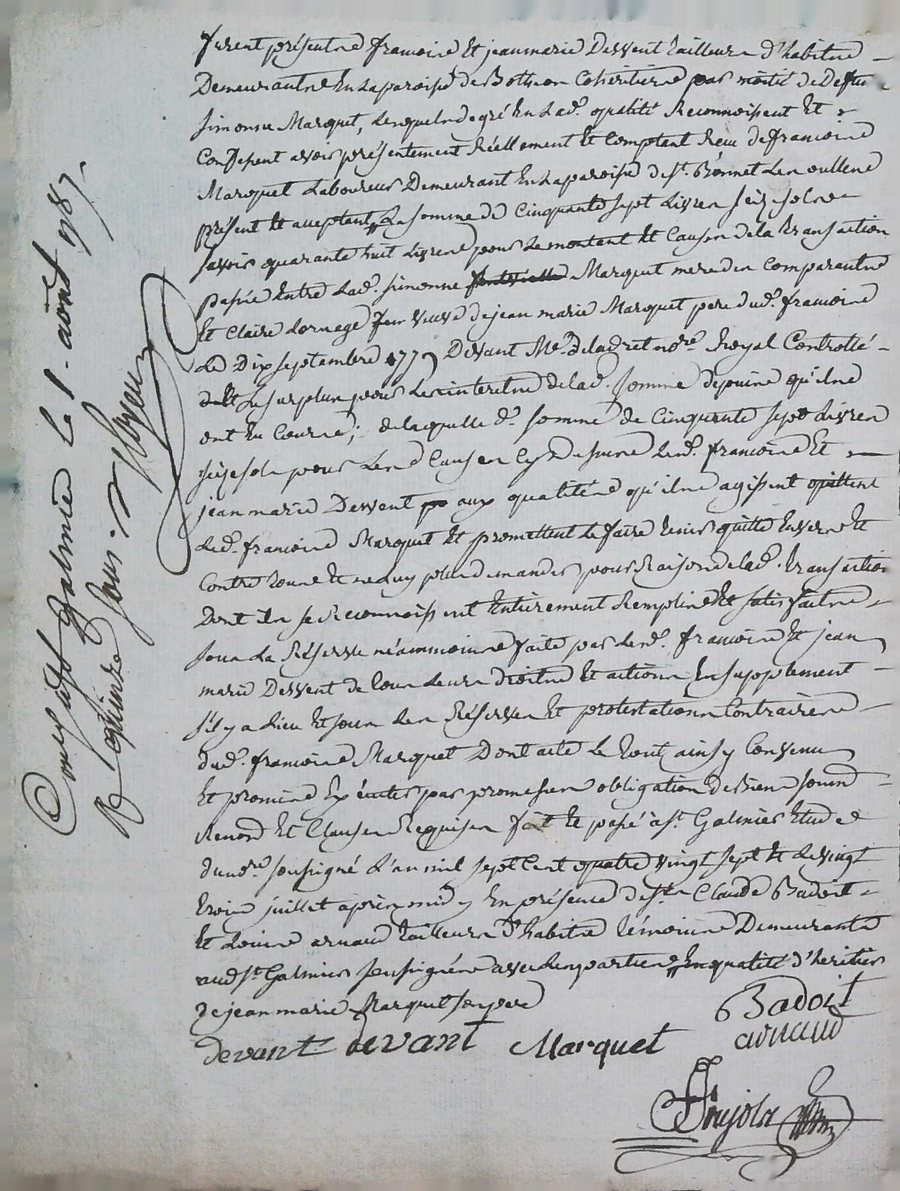 furent présents francois Et jean marie Dessent tailleurs d'habits
Demeurants En la paroisse de Bothéon Cohéritiers par moitié de Deffunte
simonne Marquet, Lesquels de gré En lad. qualité Reconnoissent Et
Confessent avoir présentement Réellement et Comptant Recu de francois
Marquet Laboureur Demeurant En la paroisse de st. Bonnet Les oulles
présent Et acceptant La somme de Cinquante sept Livres seize sols
savoir quarante huit Livres pour Le montant Et Causes de la transaction
passée Entre Lad. simonne Marquet mere des Comparants
Et Claire Lornage veuve de jean marie Marquet pere dud. francois
Le Dix septembre 177 Devant Me. Deladret nore. Royal Controllé
Et Le surplus pour Les interets de lad. somme depuis qu'ils
ont Eu Cours; de laquelle d. somme de Cinquante sept Livres
seize sols pour Les d. Causes Cy dessus Led. francois Et
jean marie Dessent aux qualités qu'ils agissent quittent
Led. francois Marquet Et promettent Le faire tenir quitte Envers Et
Contre tous Et ne luy plus demander pour Raison de lad. transaction
Dont ils se Reconnoissent Entierement Remplis Et satisfaits
sous La Réserve néammoins faite par Lesd. francois Et jean
marie Dessent de tous Leurs droits Et actions En supplement
s'il y a Lieu Et sous Les Réserves Et protestations Contraires
dud. francois Marquet Dont acte Le tout ainsy Convenu
Et promis Exécuter par promesses obligation de biens soums
Renond Et Clauses Requises fait Et passé a st. Galmier Etude
du nore. soussigné L'an mil sept Cent quatre vingt sept Et Le vingt
trois juillet après midy En présence de sr. Claude Badoit
Et Louis arnaud tailleurs d'habits témoins Demeurants
aud. st. Galmier soussignés avec Les parties En qualité d'heritier
de jean marie Marquet son pere
devant devant Marquet Badoit
arnaud
Pujols
Con. a st Galmier le 1. août 1787
R quinze sous